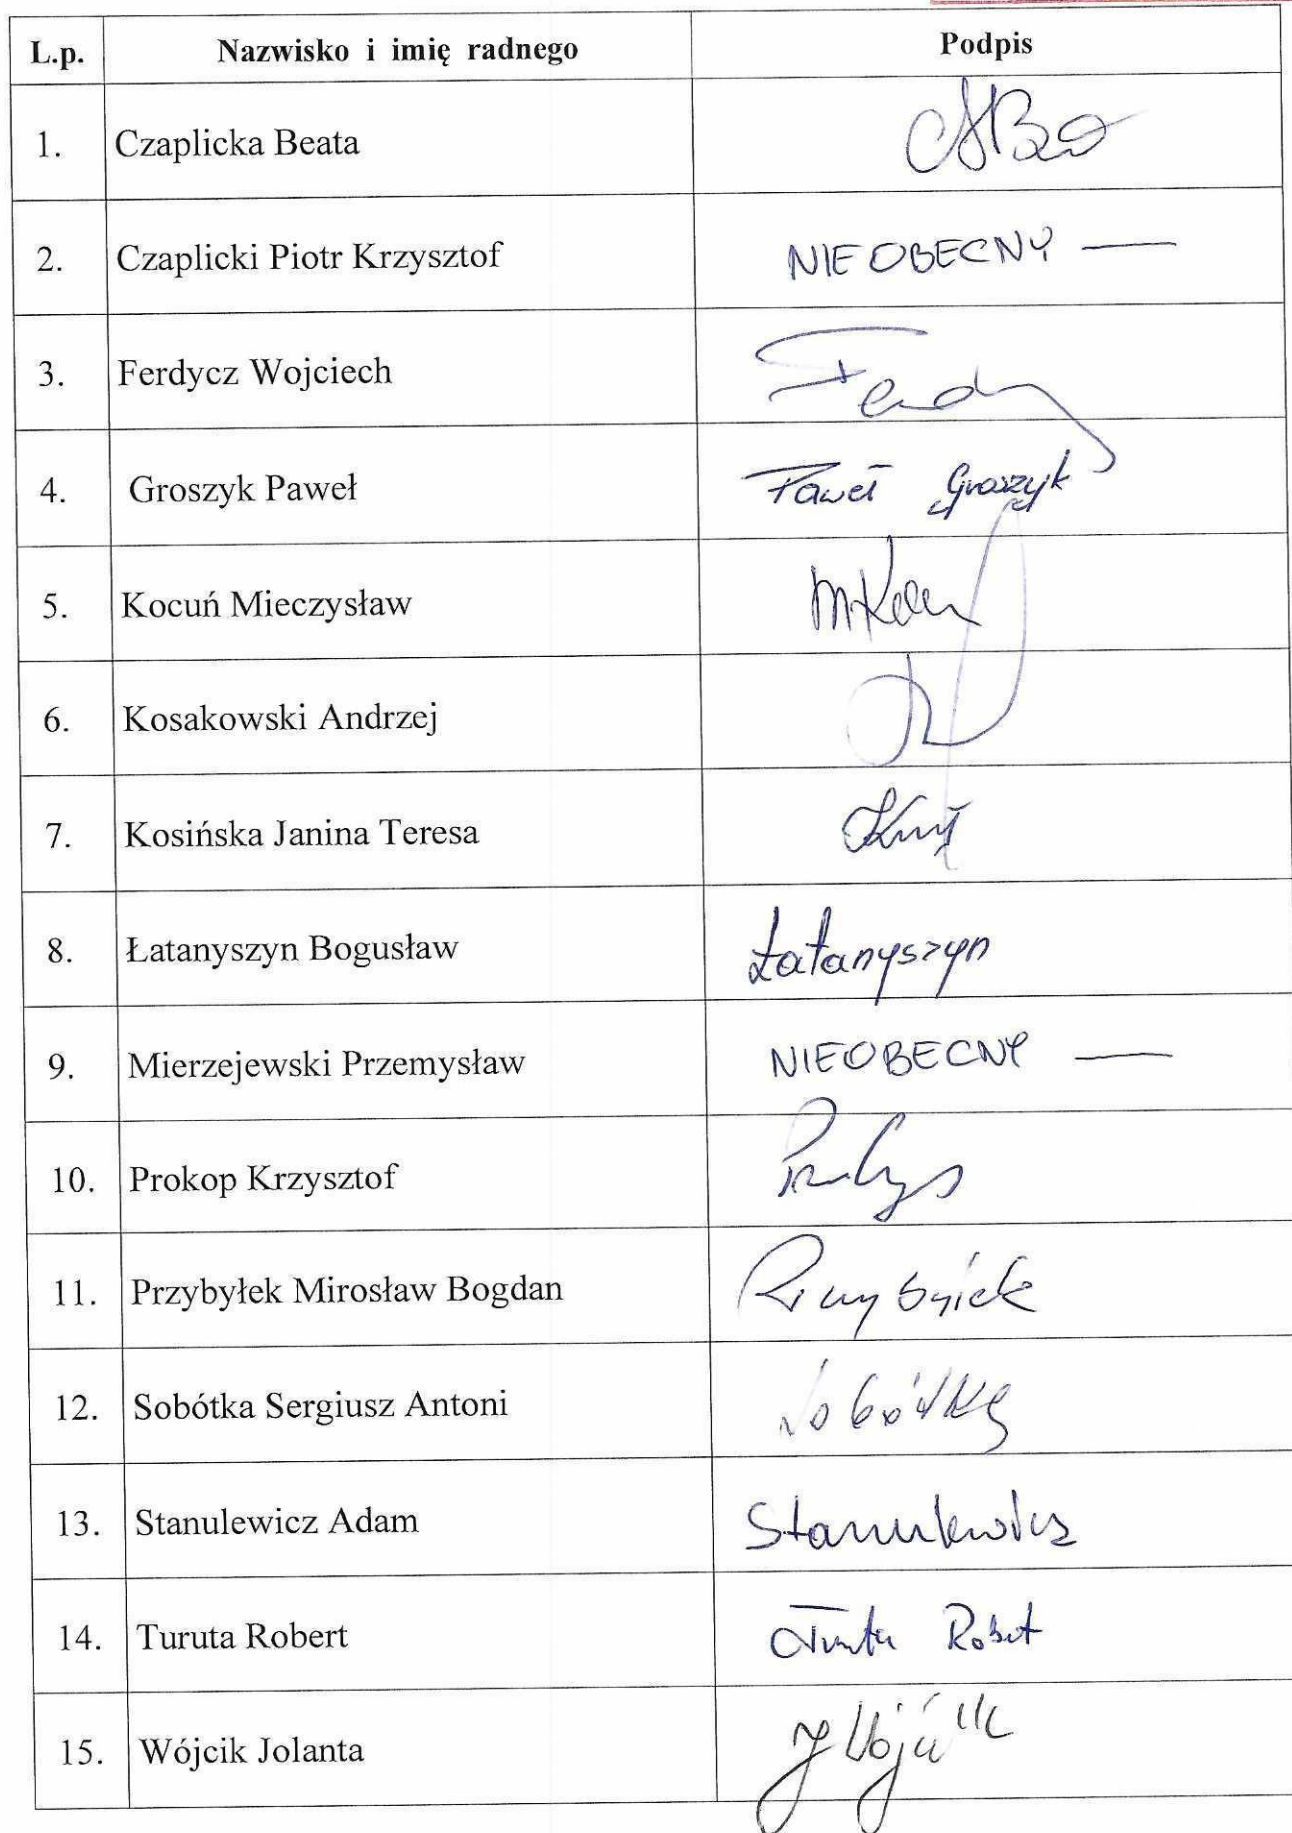 L.p. Nazwisko i imię radnego Podpis
1. Czaplicka Beata
2. Czaplicki Piotr Krzysztof NIEOBECNY —
3. Ferdycz Wojciech
4. Groszyk Paweł Paweł Groszyk
5. Kocuń Mieczysław
6. Kosakowski Andrzej
7. Kosińska Janina Teresa
8. Łatanyszyn Bogusław Łatanyszyn
9. Mierzejewski Przemysław NIEOBECNY —
10. Prokop Krzysztof
11. Przybyłek Mirosław Bogdan
12. Sobótka Sergiusz Antoni Sobótka
13. Stanulewicz Adam Stanulewicz
14. Turuta Robert Turuta Robert
15. Wójcik Jolanta J Wójcik